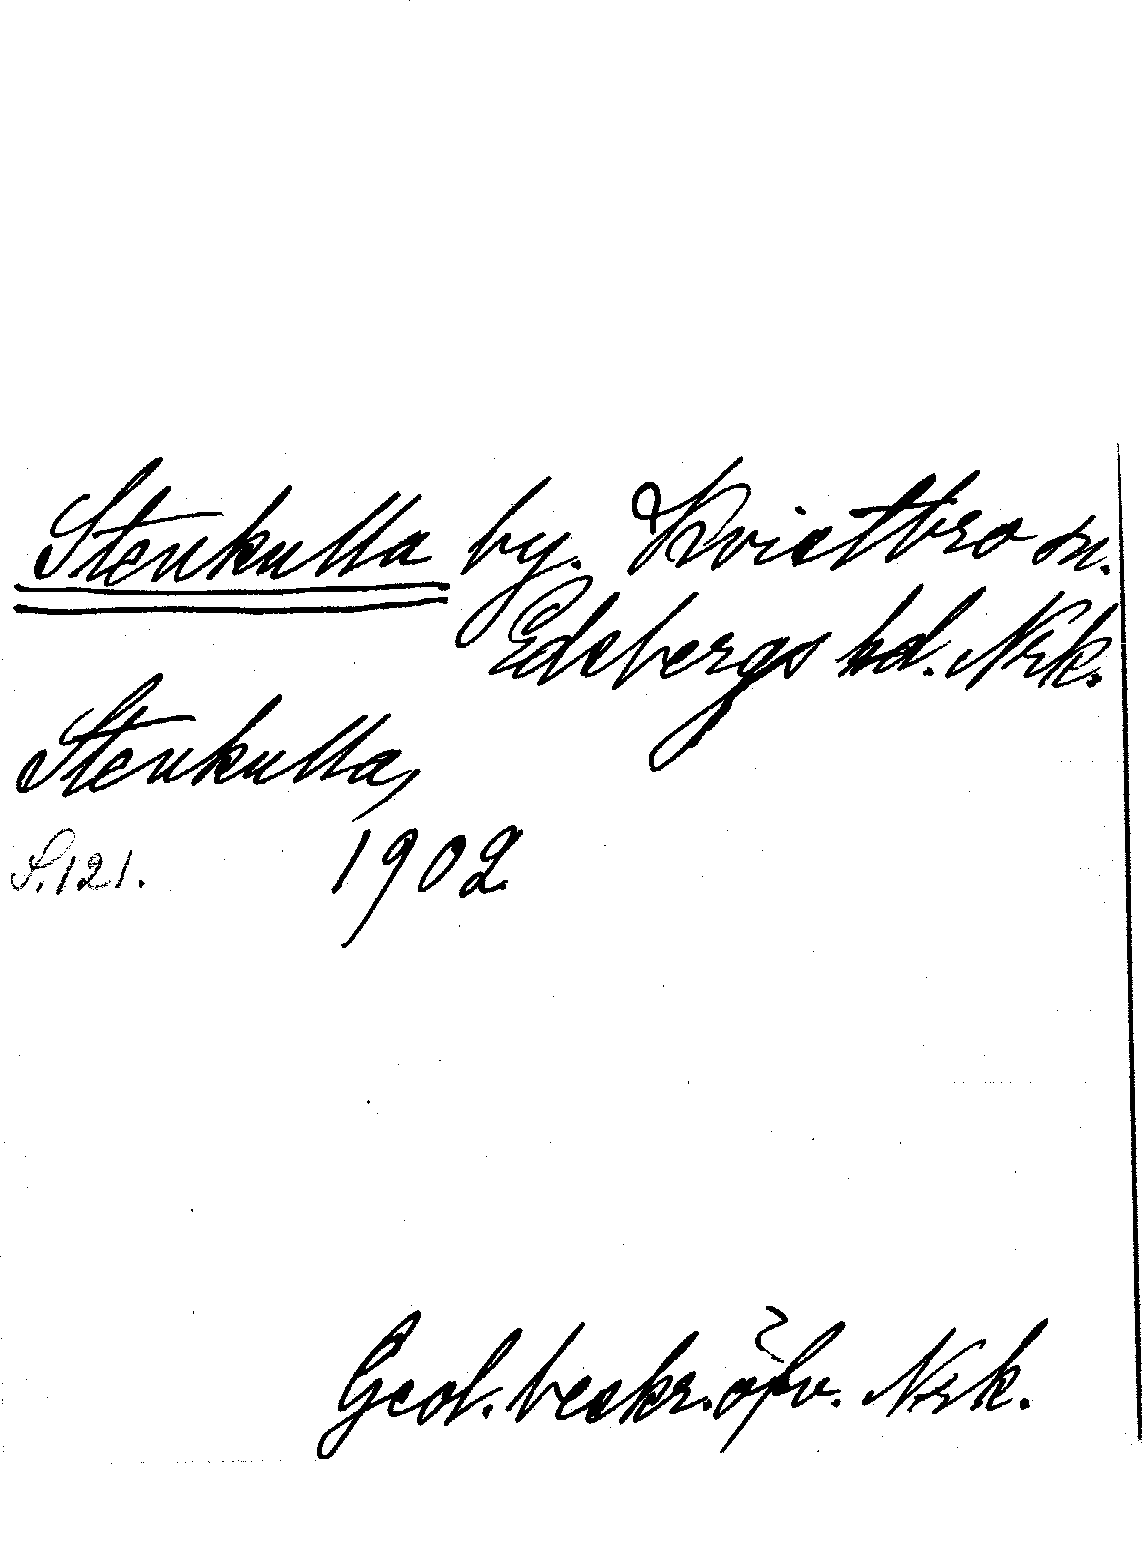 Stenkulla by. Kvistbro sn.
Edsbergs hd. Nrk.
Stenkulla,
S. 121. 1902
Geol. beskr. öfv. Nrk.